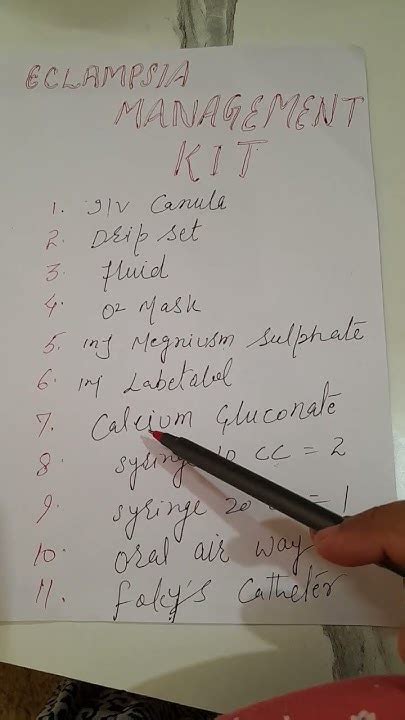 ECLAMPSIA
MANAGEMENT
KIT
1. I/V Canula
2. Drip set
3. fluid
4. O2 Mask
5. inj Megniusm Sulphate
6. inj Labetalol
7. Calcium Gluconate
8 syringe 10 CC = 2
9. syringe 20 = 1
10. oral air way
11. foley's Catheter